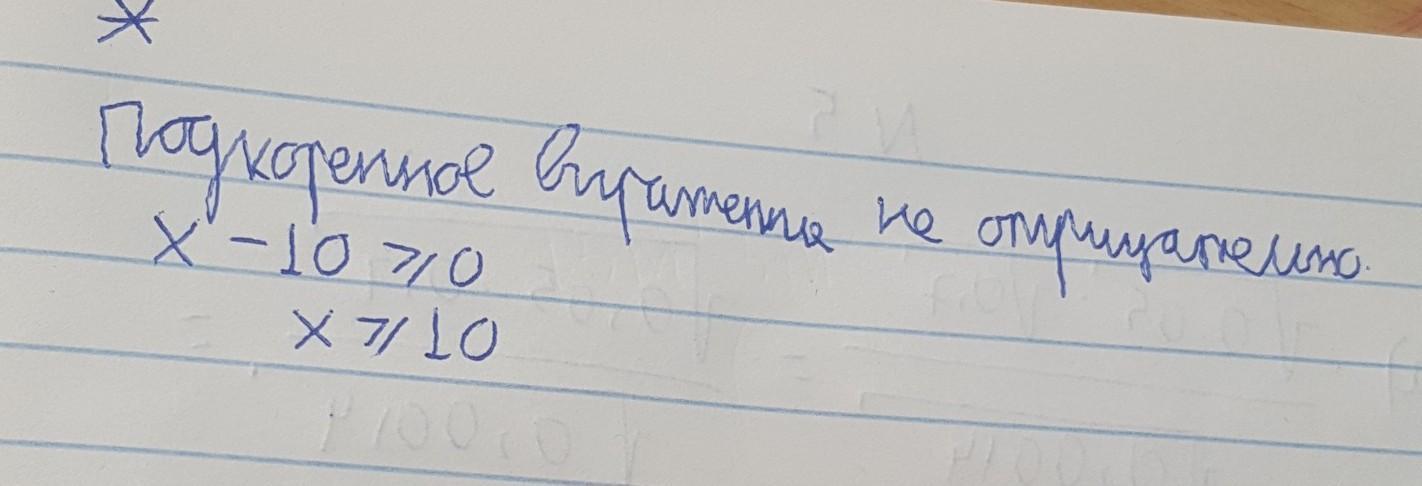 *
Подкоренное выражение не отрицательно.
x - 10 ⩾ 0
x ⩾ 10